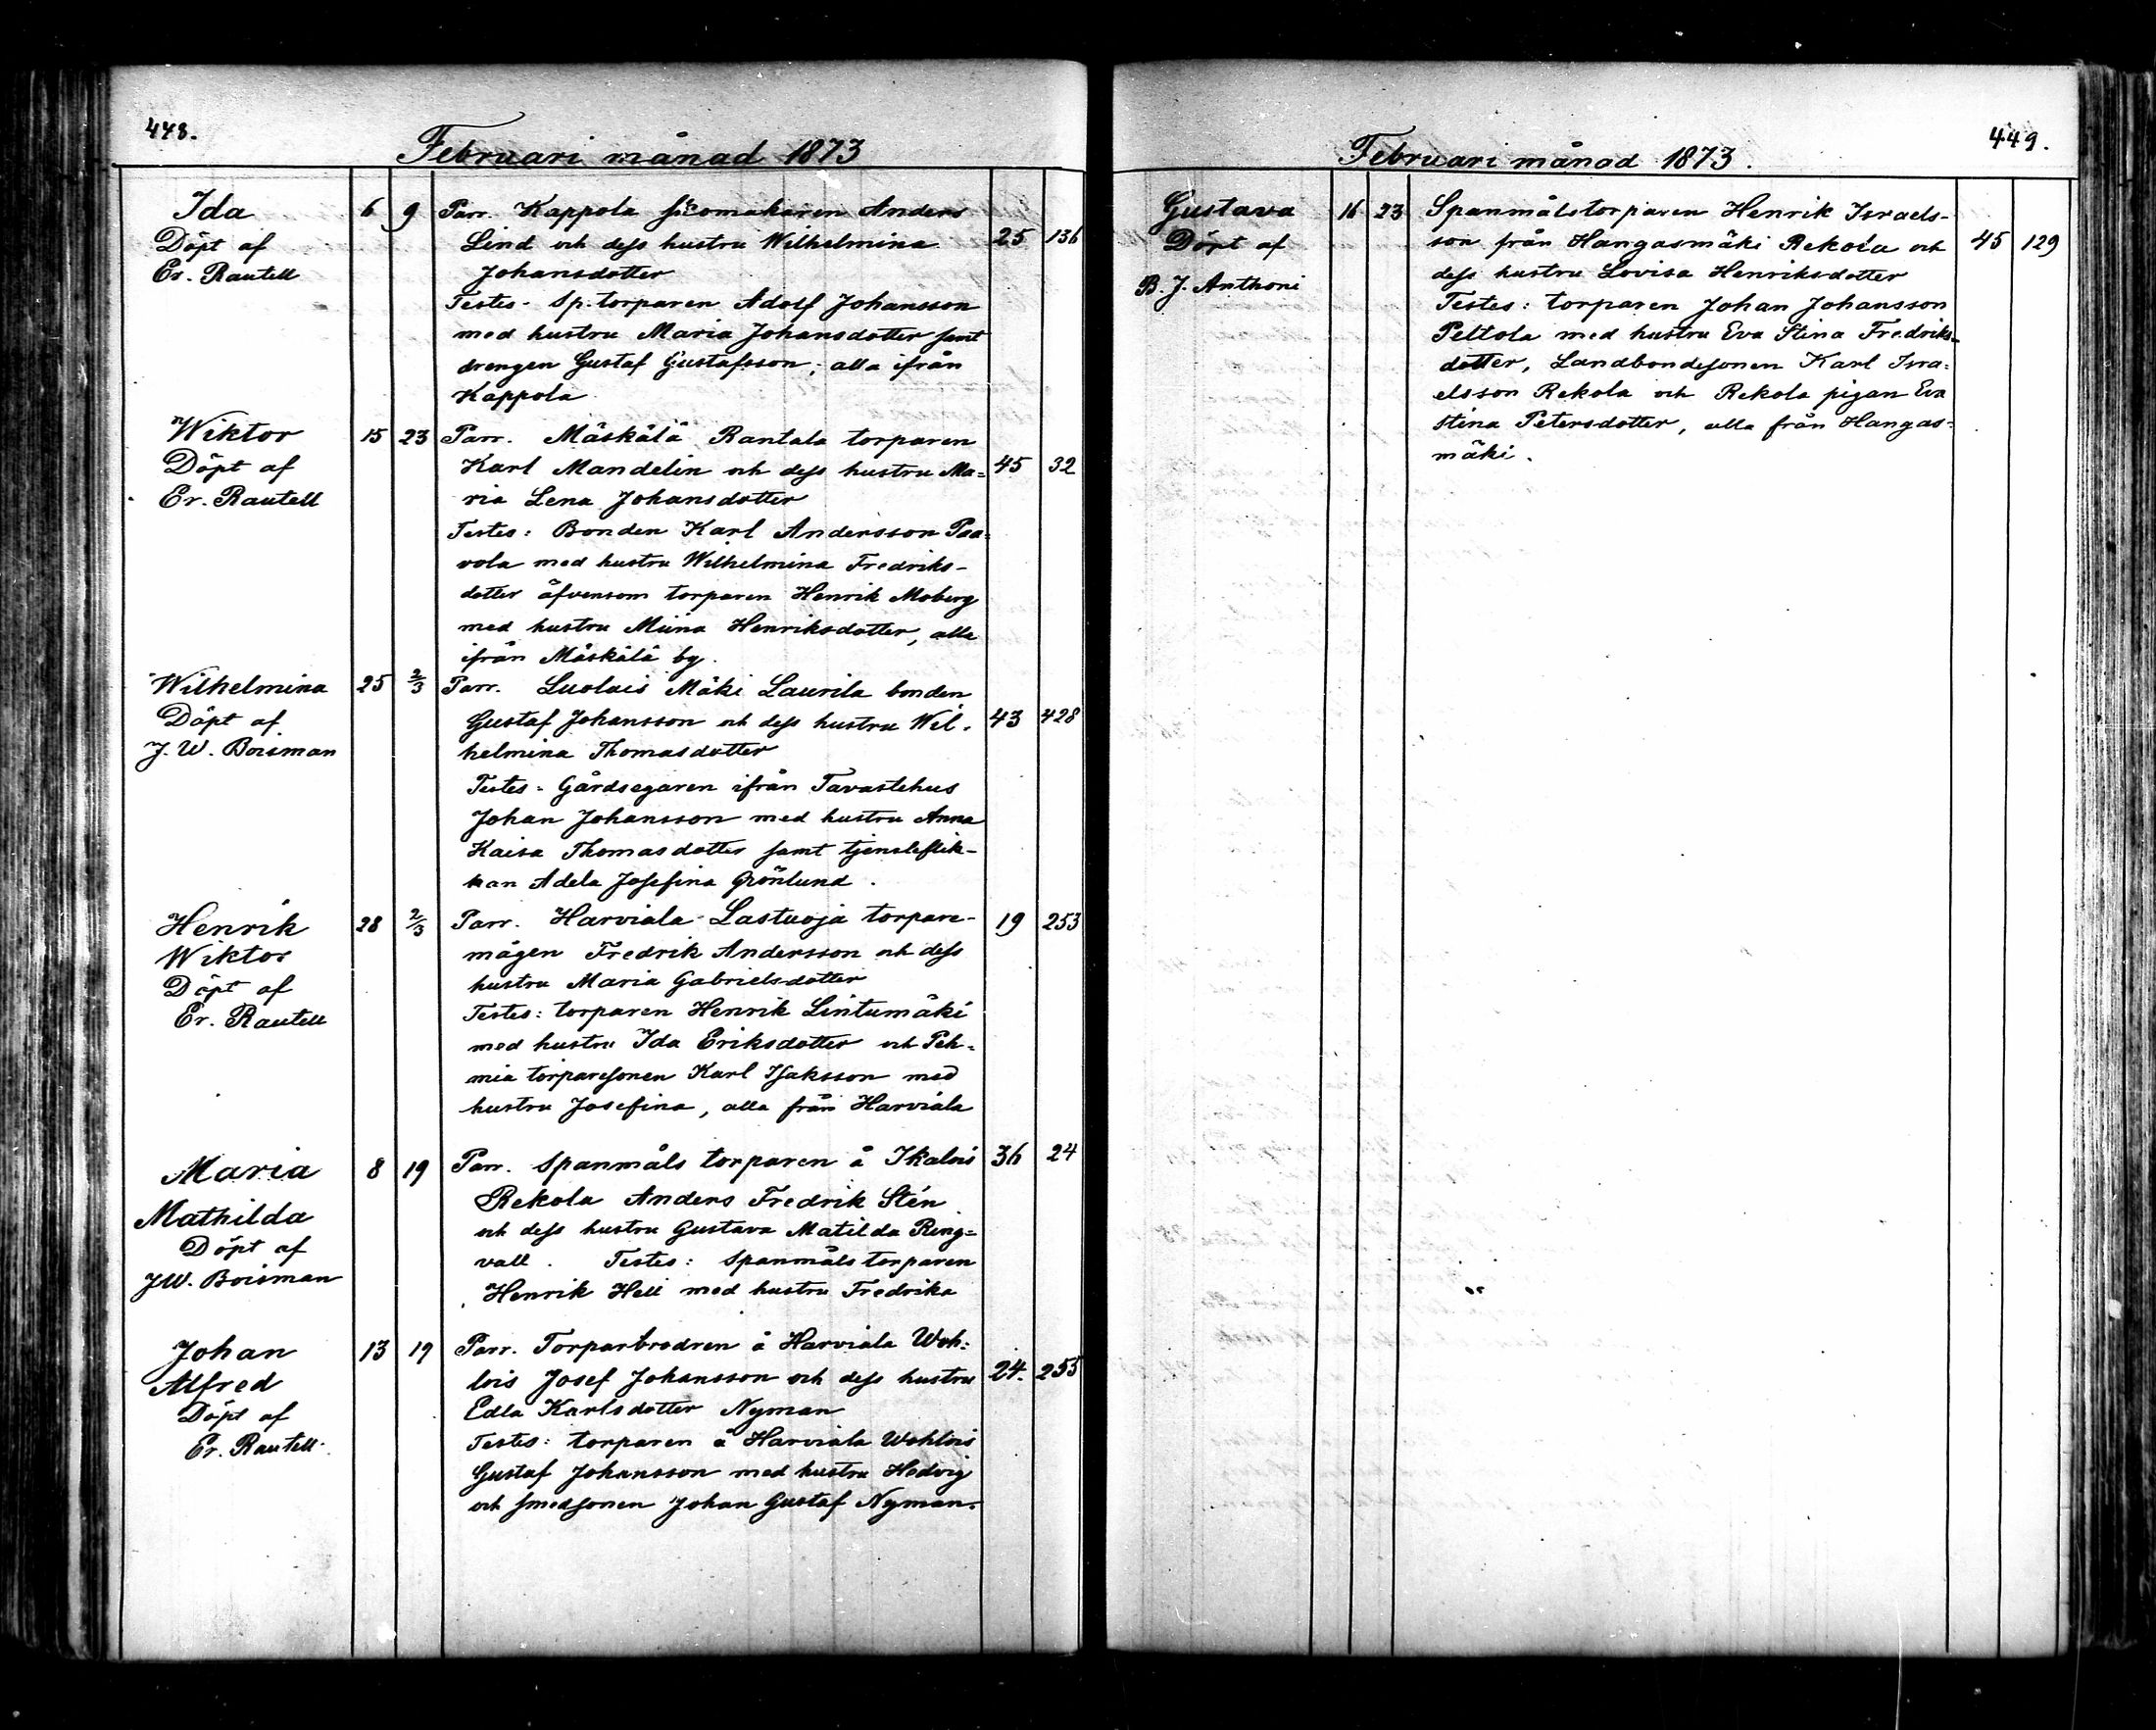 448.
Februari månad 1873
Ida 6 9 Parr. Kappola skomakaren Anders
Döpt af Lind och dess hustru Wilhelmina 25 136
Er. Rautell Johansdotter
Testes - Sp. torparen Adolf Johansson
med hustru Maria Johansdotter samt
drengen Gustaf Gustafsson, alla ifrån
Kappola
Wiktor 15 23 Parr. Mäskälä Rantala torparen
Döpt af Karl Mandelin och dess hustru Ma= 45 32
Er. Rautell ria Lena Johansdotter
Testes: Bonden Karl Andersson Paa=
vola med hustru Wilhelmina Fredriks-
dotter äfvensom torparen Henrik Moberg
med hustru Miina Henriksdotter, alla
ifrån Mäskälä by.
Wilhelmina 25 2/3 Parr. Luolais Mäki Laurila bonden
Döpt af Gustaf Johansson och dess hustru Wil- 43 428
J. W. Boisman helmina Thomasdotter
Testes: Gårdsegaren ifrån Tavastehus
Johan Johansson med hustru Anna
Kaisa Thomasdotter samt tjensteflik-
kan Adela Josefina Grönlund.
Henrik 28 2/3 Parr. Harviala Lastuoja torpare- 19 253
Wiktor mågen Fredrik Andersson och dess
Döpt af hustru Maria Gabrielsdotter
Er. Rautell Testes: torparen Henrik Lintumäki
med hustru Ida Eriksdotter och Peh-
mia torparesonen Karl Isaksson med
hustru Josefina, alla från Harviala
Maria 8 19 Parr. Spanmåls torparen å Ikalois 36 24
Mathilda Rekola Anders Fredrik Stén
Döpt af och dess hustru Gustava Matilda Ring=
J W. Boisman vall. Testes: Spanmåls torparen
Henrik Hell med hustru Fredrika
Johan 13 19 Parr. Torparbrodren å Harviala Woh=
Alfred lois Josef Johansson och dess hustru 24. 255
Döpt af Edla Karlsdotter Nyman
Er. Rautell. Testes: torparen å Harviala Wohlois
Gustaf Johansson med hustru Hedvig
och smedsonen Johan Gustaf Nyman.
449.
Februari månad 1873.
Gustava 16 23 Spanmålstorparen Henrik Israels-
Döpt af son från Hangasmäki Rekola och 45 129
B. J. Anthoni dess hustru Lovisa Henriksdotter
Testes: torparen Johan Johansson
Peltola med hustru Eva Stina Fredriks=
dotter, Landbondesonen Karl Isra=
elsson Rekola och Rekola pigan Eva
Stina Petersdotter, alla från Hangas=
mäki.